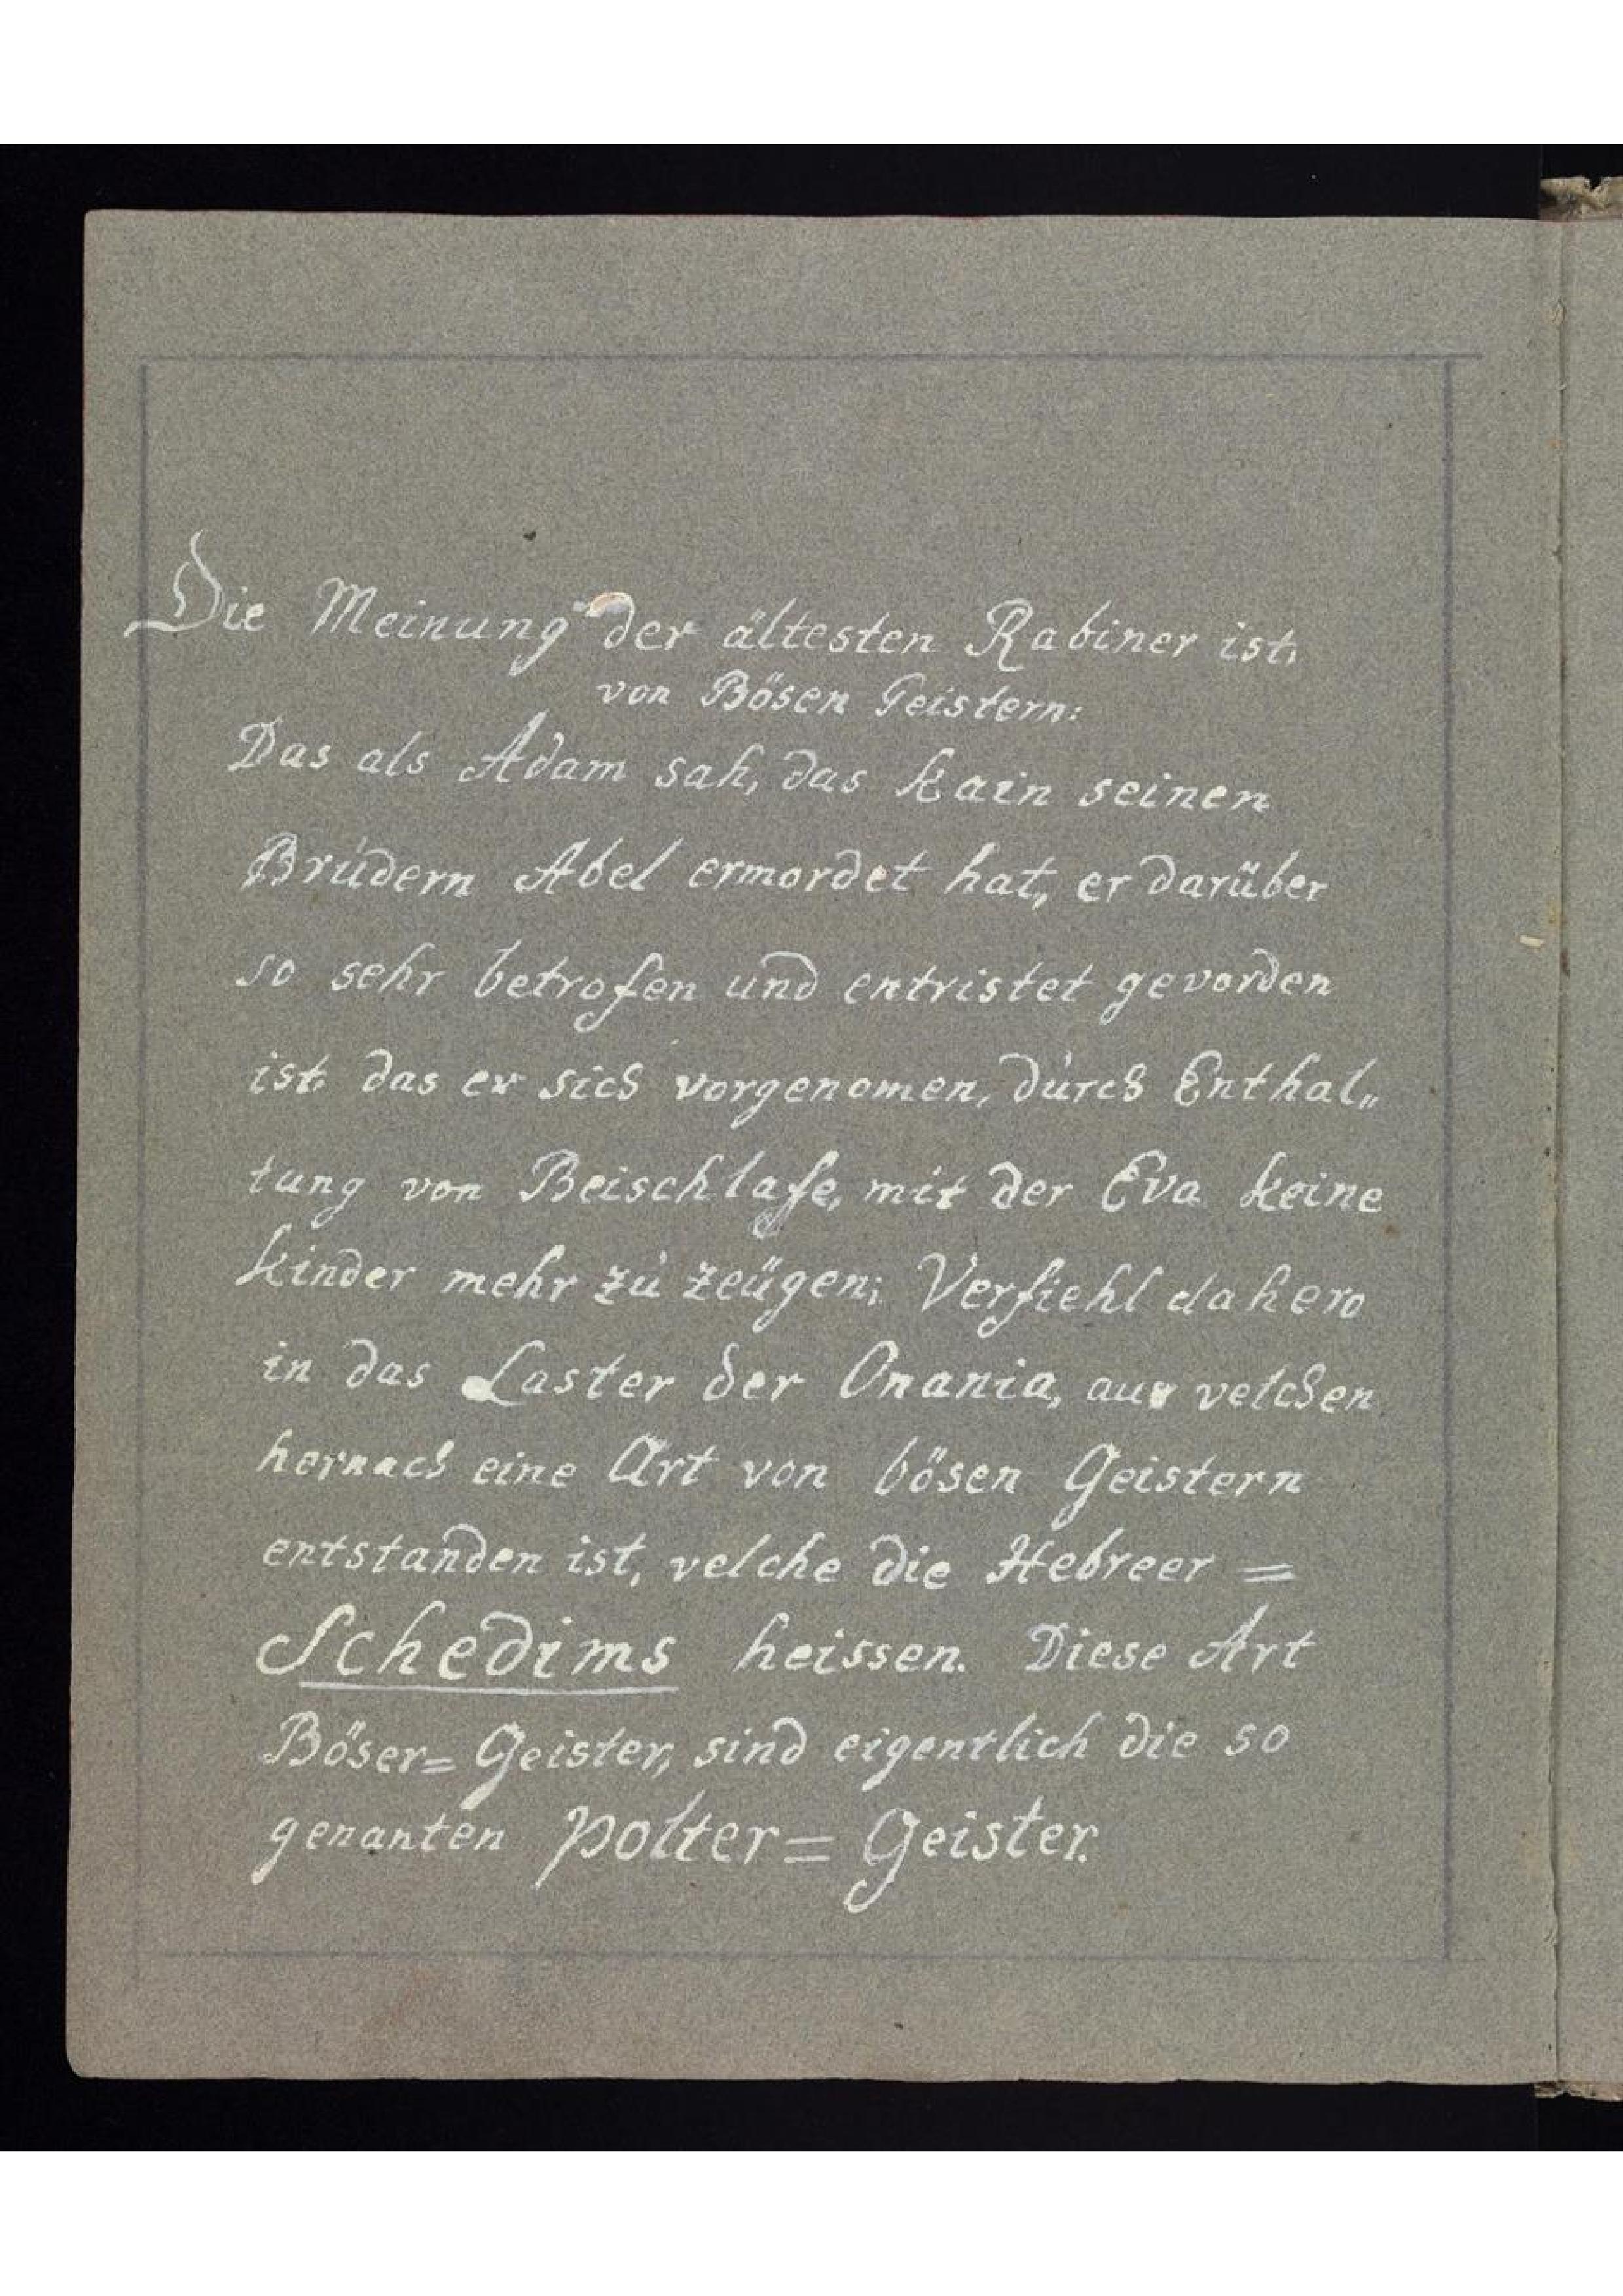 Die Meinung der ältesten Rabiner ist,
von Bösen Geistern:
Das als Adam sah, das Kain seinen
Brúdern Abel ermordet hat, er darüber
so sehr betrofen und entristet gevorden
ist, das er sich vorgenomen, dúrch Enthal„
tung von Beischlafe, mit der Eva keine
kinder mehr zú zeügen; Verfiehl dahero
in das Laster der Onania, aus velchen
hernach eine Art von bösen Geistern
entstanden ist, velche die Hebreer =
Schedims heissen. Diese Art
Böser= Geister, sind eigentlich die so
genanten Polter= Geister.